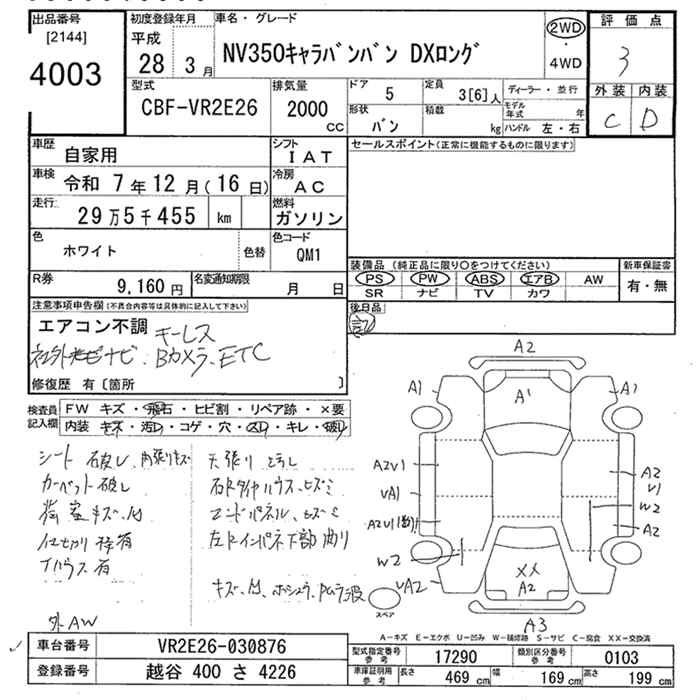 出品番号 初度登録年月 車名・グレード 評価点
[2144] 平成 2WD
4003 28 3月 NV350キャラバンバン DXロング ・ 3
4WD
型式 排気量 ドア 定員 ディーラー・並行 外装 内装
CBF-VR2E26 2000 cc 5 3[6]人 モデル年式 年 C D
形状 バン 積載 kg ハンドル 左・右
車歴 自家用 シフト IAT セールスポイント(正常に機能するものに限ります)
車検 令和 7年 12月(16日) 冷房 AC
走行 29万5千455 km 燃料 ガソリン
色 ホワイト 色替 色コード QM1
装備品 (純正品に限り○をつけてください) 新車保証書
R券 9,160円 名変通知期限 月 日 PS PW ABS エアB AW 有・無
SR ナビ TV カワ
注意事項申告欄(不具合内容等は具体的に記入して下さい) 後日品
エアコン不調 キーレス 記
ナビ、Bカメラ、ETC
修復歴 有〔箇所 〕
検査員記入欄 FW キズ・飛石・ヒビ割・リペア跡・×要
内装 キズ・汚レ・コゲ・穴・スレ・キレ・破レ
シート 破レ、内張りキズ 天張り
カーペット破レ
キズ、M エンドパネル
仕切り 有 左リインパネ下部曲り
有
キズ、M
外AW
A2
A1 A1 A1
A2V1 A2
VA1 V1
W2
A2V1 A2
W2
VA2 XX
A2
スペア
A3
A-キズ E-エクボ U-凹み W-補修跡 S-サビ C-腐食 XX-交換済
車台番号 VR2E26-030876 型式指定番号 参考 17290 類別区分番号 参考 0103
登録番号 越谷 400 さ 4226 車庫証明用 参考 長さ 469cm 幅 169cm 高さ 199cm